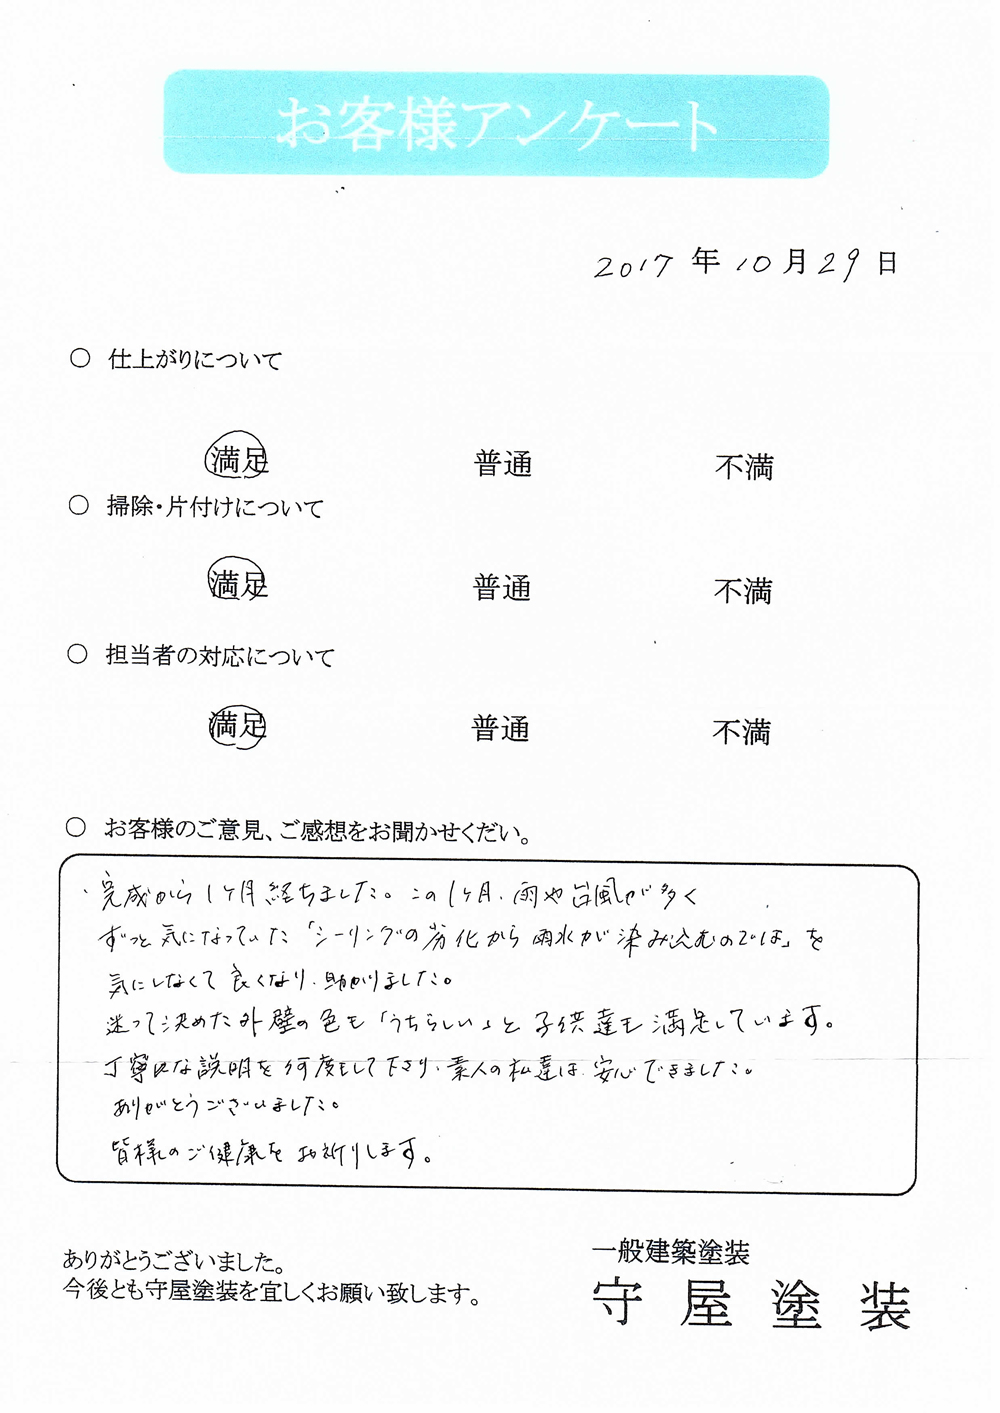 お客様アンケート
2017年10月29日
○ 仕上がりについて
満足 普通 不満
○ 掃除・片付けについて
満足 普通 不満
○ 担当者の対応について
満足 普通 不満
○ お客様のご意見、ご感想をお聞かせくだい。
・完成から1ヶ月経ちました。この1ヶ月、雨や台風が多く
ずっと気になっていた「シーリングの劣化から雨水が染み込むのでは」を
気にしなくて良くなり、助かりました。
迷って決めた外壁の色も「うちらしい」と子供達も満足しています。
丁寧な説明を何度もして下さり、素人の私達は安心できました。
ありがとうございました。
皆様のご健康をお祈りします。
ありがとうございました。
今後とも守屋塗装を宜しくお願い致します。
一般建築塗装
守屋塗装